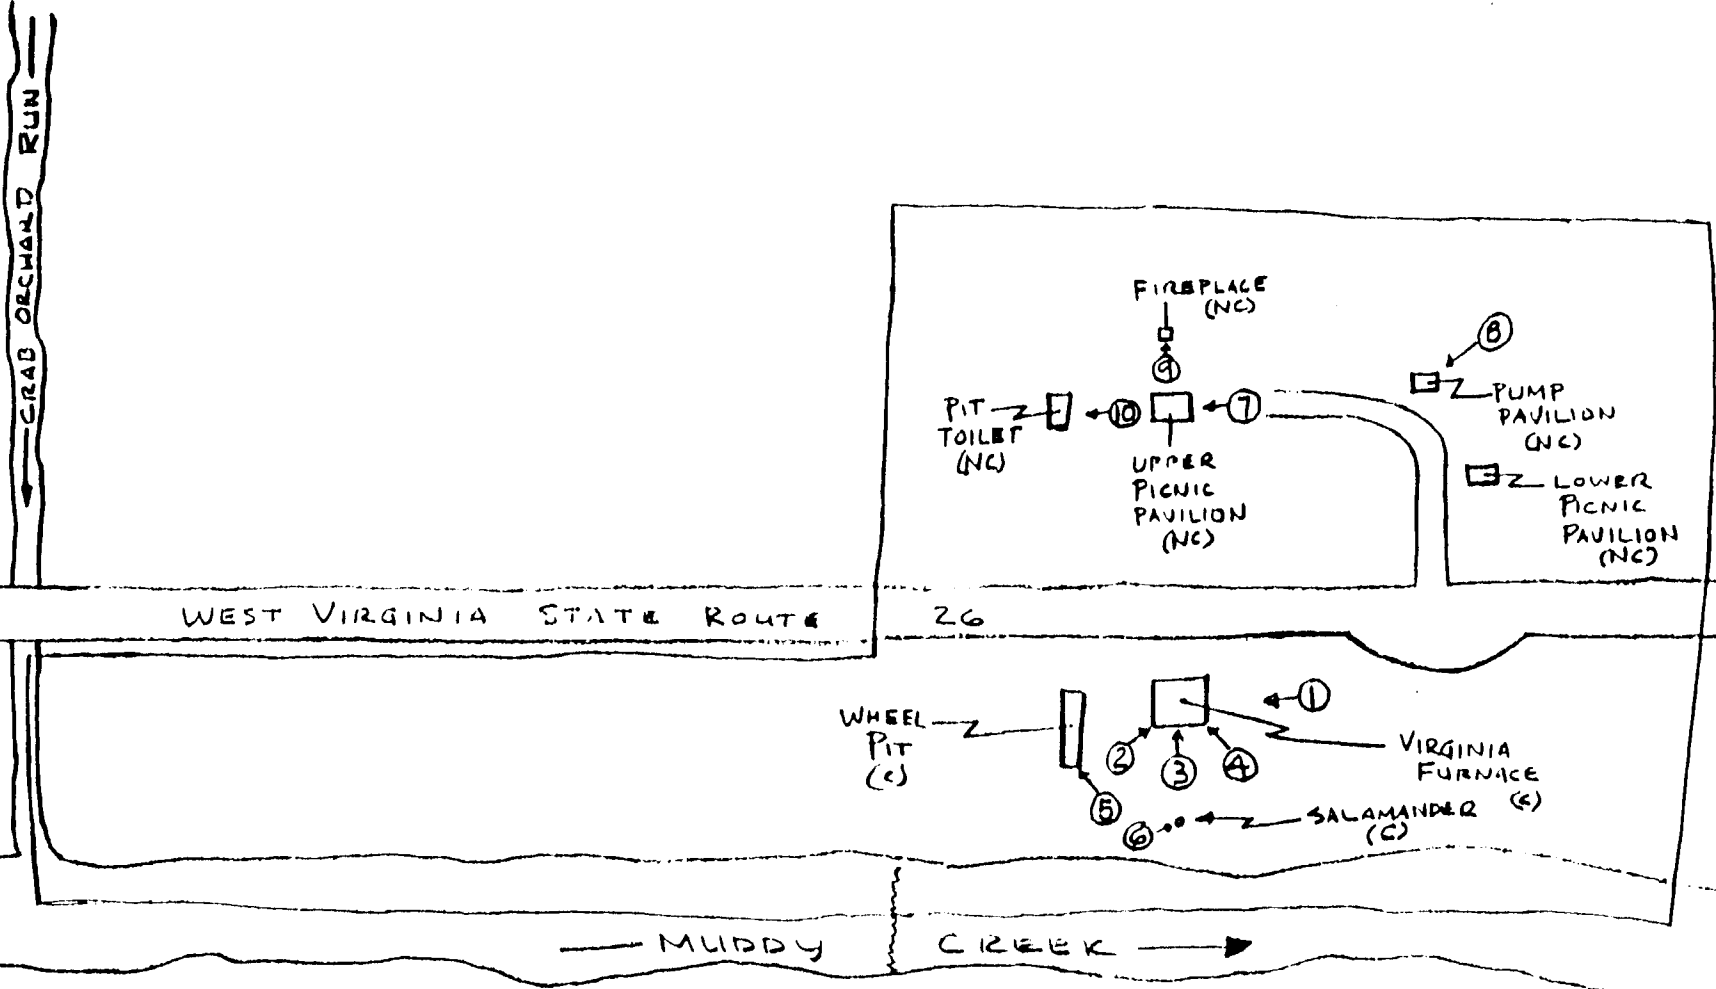 CRAB ORCHARD RUN
FIREPLACE
(NC)
8
9
PIT
TOILET
(NC)
10
7
PUMP
PAVILION
(NC)
UPPER
PICNIC
PAVILION
(NC)
LOWER
PICNIC
PAVILION
(NC)
WEST VIRGINIA STATE ROUTE 26
1
WHEEL
PIT
(C)
2
3
4
VIRGINIA
FURNACE
(C)
5
6
SALAMANDER
(C)
MUDDY CREEK